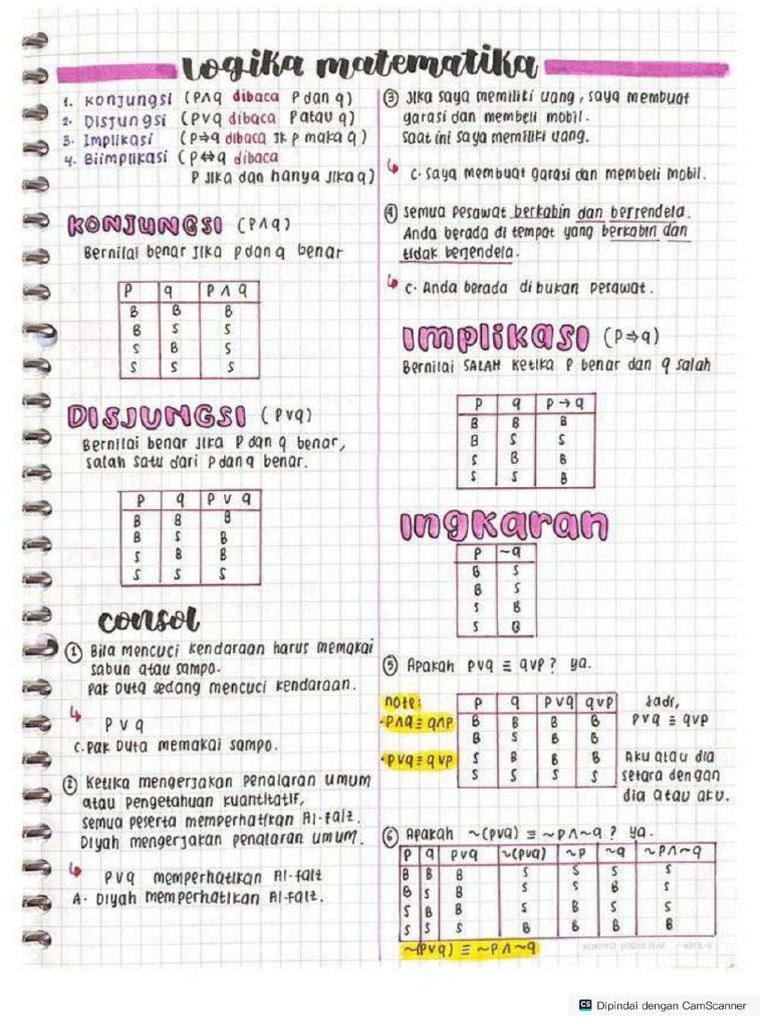 Logika matematika
1. Konjungsi (p∧q dibaca p dan q)
2. Disjungsi (p∨q dibaca p atau q)
3. Implikasi (p⇒q dibaca JK p maka q)
4. Biimplikasi (p⇔q dibaca
p jika dan hanya jika q)
KONJUNGSI (p∧q)
Bernilai benar jika p dan q benar
p q p∧q
B B B
B S S
S B S
S S S
DISJUNGSI (p∨q)
Bernilai benar jika p dan q benar,
salah satu dari p dan q benar.
p q p∨q
B B B
B S B
S B B
S S S
consol
① Bila mencuci kendaraan harus memakai
sabun atau sampo.
Pak Duta sedang mencuci kendaraan.
↳ p∨q
C. Pak Duta memakai sampo.
② Ketika mengerjakan penalaran umum
atau pengetahuan kuantitatif,
semua peserta memperhatikan Al-faiz.
Diyah mengerjakan penalaran umum.
↳ p∨q memperhatikan Al-faiz
A. Diyah memperhatikan Al-faiz.
③ Jika saya memiliki uang, saya membuat
garasi dan membeli mobil.
Saat ini saya memiliki uang.
↳ C. Saya membuat garasi dan membeli mobil.
④ Semua pesawat berkabin dan berjendela.
Anda berada di tempat yang berkabin dan
tidak berjendela.
↳ C. Anda berada di bukan pesawat.
Implikasi (p⇒q)
Bernilai SALAH ketika p benar dan q salah
p q p→q
B B B
B S S
S B B
S S B
Ingkaran
p ~q
B S
B S
S B
S B
⑤ Apakah p∨q ≡ q∨p? ya.
note:
• p∧q ≡ q∧p
• p∨q ≡ q∨p
p q p∨q q∨p
B B B B
B S B B
S B B B
S S S S
Jadi,
p∨q ≡ q∨p
Aku atau dia
setara dengan
dia atau aku.
⑥ Apakah ~(p∨q) ≡ ~p∧~q? ya.
p q p∨q ~(p∨q) ~p ~q ~p∧~q
B B B S S S S
B S B S S B S
S B B S B S S
S S S B B B B
~(p∨q) ≡ ~p∧~q
CS Dipindai dengan CamScanner